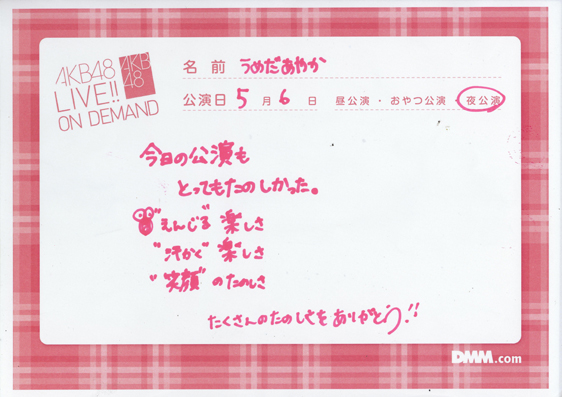 AKB48
LIVE!!
ON DEMAND
AKB
48
名前 うめだあやか
公演日 5月6日 昼公演・おやつ公演・夜公演
今日の公演も
とってもたのしかった。
"えんじる"楽しさ
"汗かく" 楽しさ
"笑顔" のたのしさ
たくさんのたのしさをありがとう!!
DMM.com